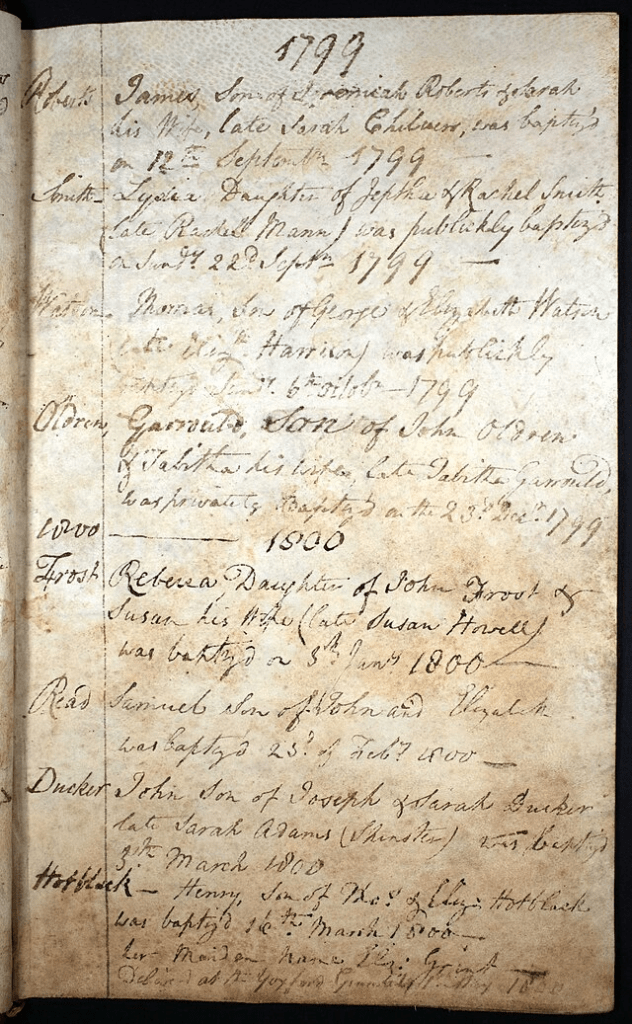 1799
Roberts James, Son of Jeremiah Roberts & Sarah
his Wife, late Sarah Chilvers, was baptyd
on 12th September 1799
Smith Lydia Daughter of Jeptha & Rachel Smith
(late Rachel Mann) was publickly baptyd
on Sundy. 22d Septr 1799
Watson Thomas, Son of George & Elizabeth Watson
late Elizth. Harrison) was publickly
baptyd Sundy. 6th octobr - 1799
Oldren, Garrould, Son of John Oldren
& Tabitha his wife, late Tabitha Garrould,
was privately Baptyd on the 23d. Decr. 1799
1800 1800
Frost Rebecca Daughter of John Frost &
Susan his Wife (late Susan Howell)
was baptyd on 5th Jany 1800
Read Samuel Son of John and Elizabeth
was baptyd 23d. of Feby 1800
Ducker John Son of Joseph & Sarah Ducker
late Sarah Adams (Spinster) was baptyd
9th March 1800
Hotblack - Henry, Son of Thos. & Eliz. Hotblack
was baptyd 16th March 1800
her Maiden Name Eliz.
at the Yoxford 1800